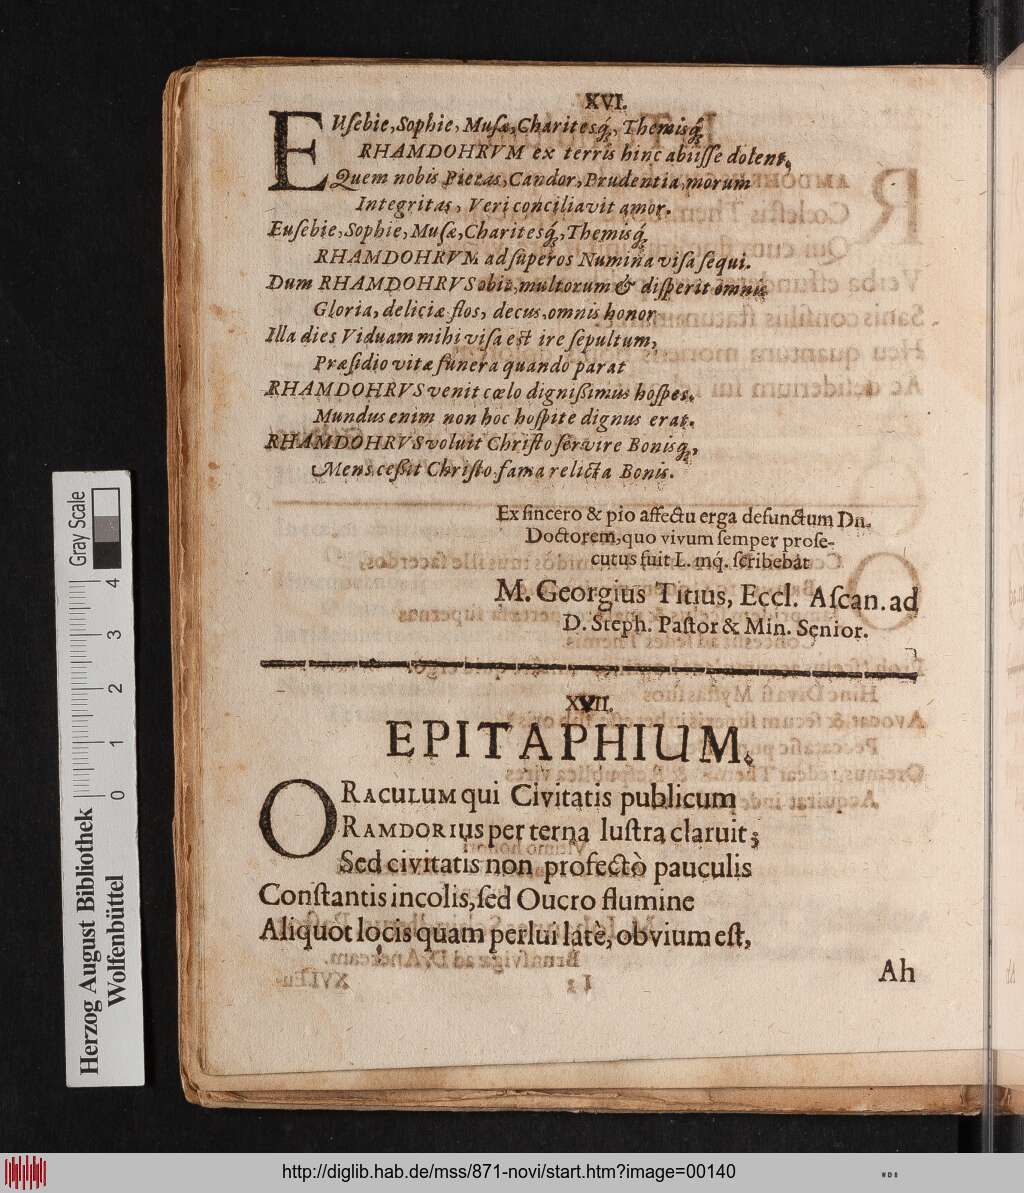 XVI.
EUſebie, Sophie, Muſæ, Charitesq́;, Themisq́;
RHAMDOHRVM ex terris hinc abiiſſe dolent,
Quem nobis Pietas, Candor, Prudentia, morum
Integritas, Veri conciliavit amor.
Euſebie, Sophie, Muſæ, Charitesq́;, Themisq́;
RHAMDOHRVM ad ſuperos Numina viſa ſequi.
Dum RHAMDOHRVS obit, multorum & diſperit omnis
Gloria, deliciæ flos, decus, omnis honor
Illa dies Viduam mihi viſa eſt ire ſepultum,
Præſidio vitæ funera quando parat
RHAMDOHRVS venit cœlo digniſſimus hoſpes.
Mundus enim non hoc hoſpite dignus erat.
RHAMDOHRVS voluit Chriſto ſervire Bonisq́;,
Mens ceßit Chriſto, fama relicta Bonis.
Ex ſincero & pio affectu erga defunctum Dn.
Doctorem, quo vivum ſemper proſe-
cutus fuit L. mq́. ſcribebat
M. Georgius Titius, Eccl. Aſcan. ad
D. Steph. Paſtor & Min. Senior.
XVII.
EPITAPHIUM.
ORACULUM qui Civitatis publicum
RAMDORIUS per terna luſtra claruit;
Sed civitatis non profectò pauculis
Conſtantis incolis, ſed Oucro flumine
Aliquot locis quam perlui latè, obvium eſt,
Ah
Gray Scale
4
3
2
1
0
Herzog August Bibliothek
Wolfenbüttel
http://diglib.hab.de/mss/871-novi/start.htm?image=00140